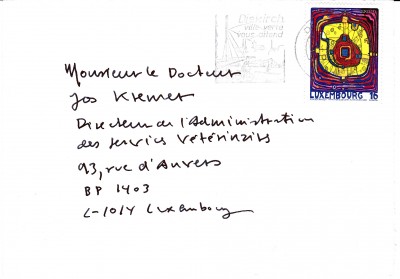 LUXEMBOURG 16
Monsieur le Docteur
Jos Kremer
Directeur de l'Administration
des services Vétérinaires
93, rue d'Anvers
BP 1403
L-1014 Luxembourg